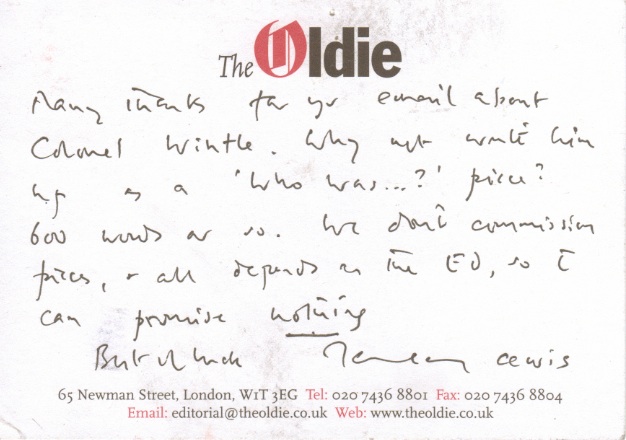 The Oldie
Many thanks for yr email about
Colonel Wintle. Why not write him
up as a 'Who was...?' piece?
600 words or so. We don't commission
pieces, & all depends on the ED, so I
can promise nothing
Best of luck Jeremy Lewis
65 Newman Street, London, W1T 3EG Tel: 020 7436 8801 Fax: 020 7436 8804
Email: editorial@theoldie.co.uk Web: www.theoldie.co.uk